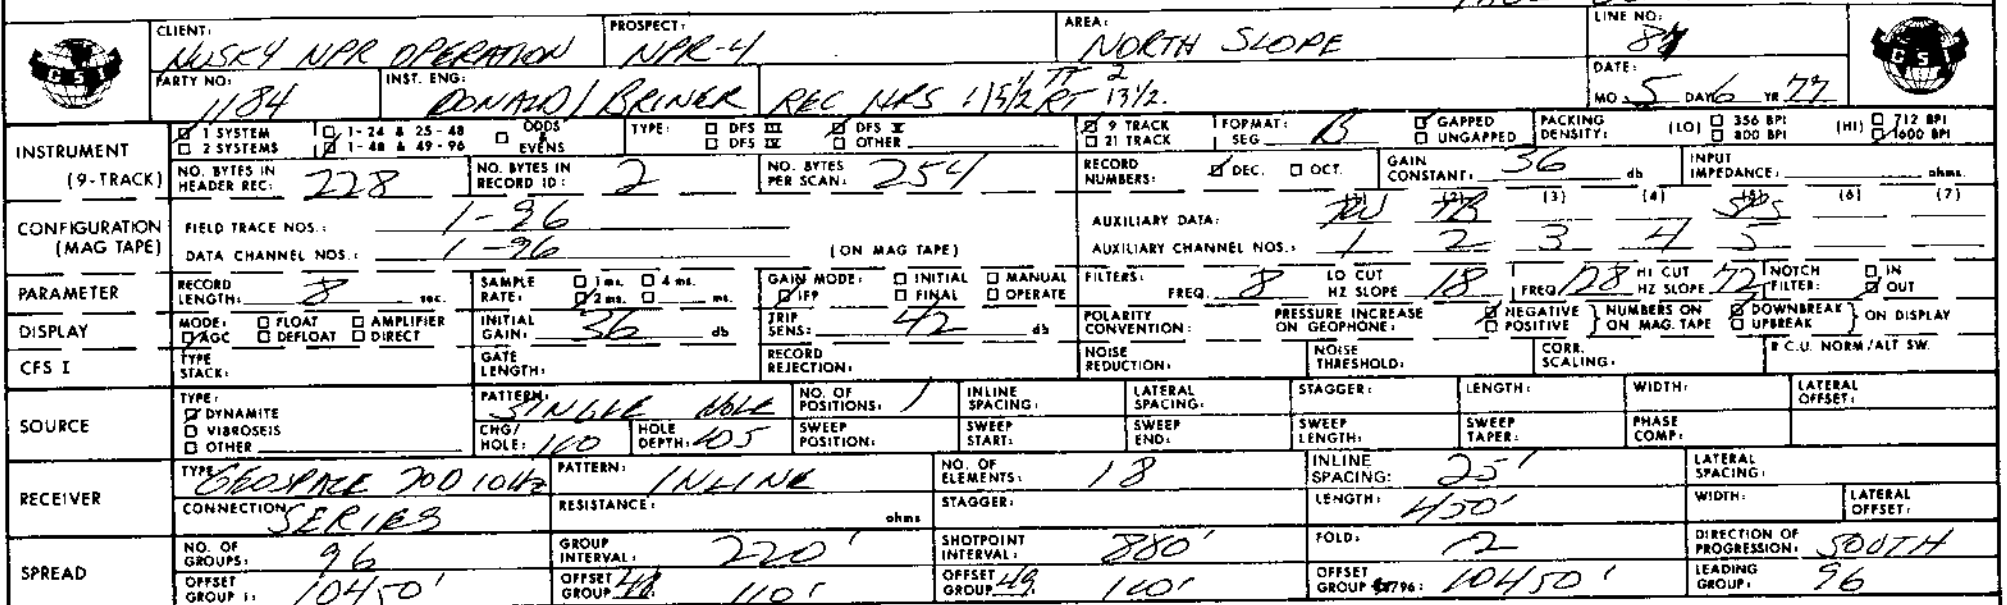 CLIENT: HUSKY NPR OPERATION PROSPECT: NPR-4 AREA: NORTH SLOPE LINE NO: 87
GSI PARTY NO: 1184 INST. ENG: DONALD / BRINER REC HRS 11 5 1/2 RT TT 2 13 1/2. DATE: MO 5 DAY 6 YR 77 GSI
INSTRUMENT (9-TRACK) 1 SYSTEM 1-24 & 25-48 ODDS & EVENS TYPE: DFS III DFS V 9 TRACK FORMAT: B GAPPED PACKING DENSITY: (LO) 356 BPI (HI) 712 BPI
2 SYSTEMS 1-48 & 49-96 DFS IV OTHER 21 TRACK SEG UNGAPPED 800 BPI 1600 BPI
NO. BYTES IN HEADER REC: 228 NO. BYTES IN RECORD ID: 2 NO. BYTES PER SCAN: 254 RECORD NUMBERS: DEC. OCT. GAIN CONSTANT: 36 db INPUT IMPEDANCE: ohms.
CONFIGURATION (MAG TAPE) FIELD TRACE NOS.: 1-96 AUXILIARY DATA: (1) (2) TB (3) (4) (5) (6) (7)
DATA CHANNEL NOS.: 1-96 (ON MAG TAPE) AUXILIARY CHANNEL NOS.: 1 2 3 4 5
PARAMETER RECORD LENGTH: 8 sec. SAMPLE RATE: 1 ms. 4 ms. 2 ms. ms. GAIN MODE: INITIAL MANUAL IFP FINAL OPERATE FILTERS: FREQ. 8 LO CUT HZ SLOPE 18 FREQ 128 HI CUT HZ SLOPE 72 NOTCH FILTER: IN OUT
DISPLAY MODE: FLOAT AMPLIFIER AGC DEFLOAT DIRECT INITIAL GAIN: 36 db TRIP SENS: 42 db POLARITY CONVENTION: PRESSURE INCREASE ON GEOPHONE: NEGATIVE POSITIVE NUMBERS ON ON MAG. TAPE DOWNBREAK UPBREAK ON DISPLAY
CFS I TYPE STACK: GATE LENGTH: RECORD REJECTION: NOISE REDUCTION: NOISE THRESHOLD: CORR. SCALING: R.C.U. NORM/ALT SW.
SOURCE TYPE: DYNAMITE VIBROSEIS OTHER PATTERN: SINGLE HOLE NO. OF POSITIONS: 1 INLINE SPACING: LATERAL SPACING: STAGGER: LENGTH: WIDTH: LATERAL OFFSET:
CHG/HOLE: 160 HOLE DEPTH: 405 SWEEP POSITION: SWEEP START: SWEEP END: SWEEP LENGTH: SWEEP TAPER: PHASE COMP:
RECEIVER TYPE GEOSPACE 20D 10Hz PATTERN: INLINE NO. OF ELEMENTS: 18 INLINE SPACING: 25' LATERAL SPACING:
CONNECTION: SERIES RESISTANCE: ohms STAGGER: LENGTH: 450' WIDTH: LATERAL OFFSET:
SPREAD NO. OF GROUPS: 96 GROUP INTERVAL: 220' SHOTPOINT INTERVAL: 880' FOLD: 12 DIRECTION OF PROGRESSION: SOUTH
OFFSET GROUP 1: 10450' OFFSET GROUP 48: 110' OFFSET GROUP 49: 110' OFFSET GROUP 96: 10450' LEADING GROUP: 96